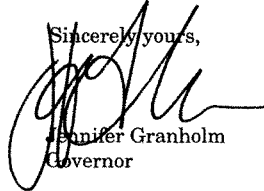 Sincerely yours,
Jennifer Granholm
Governor